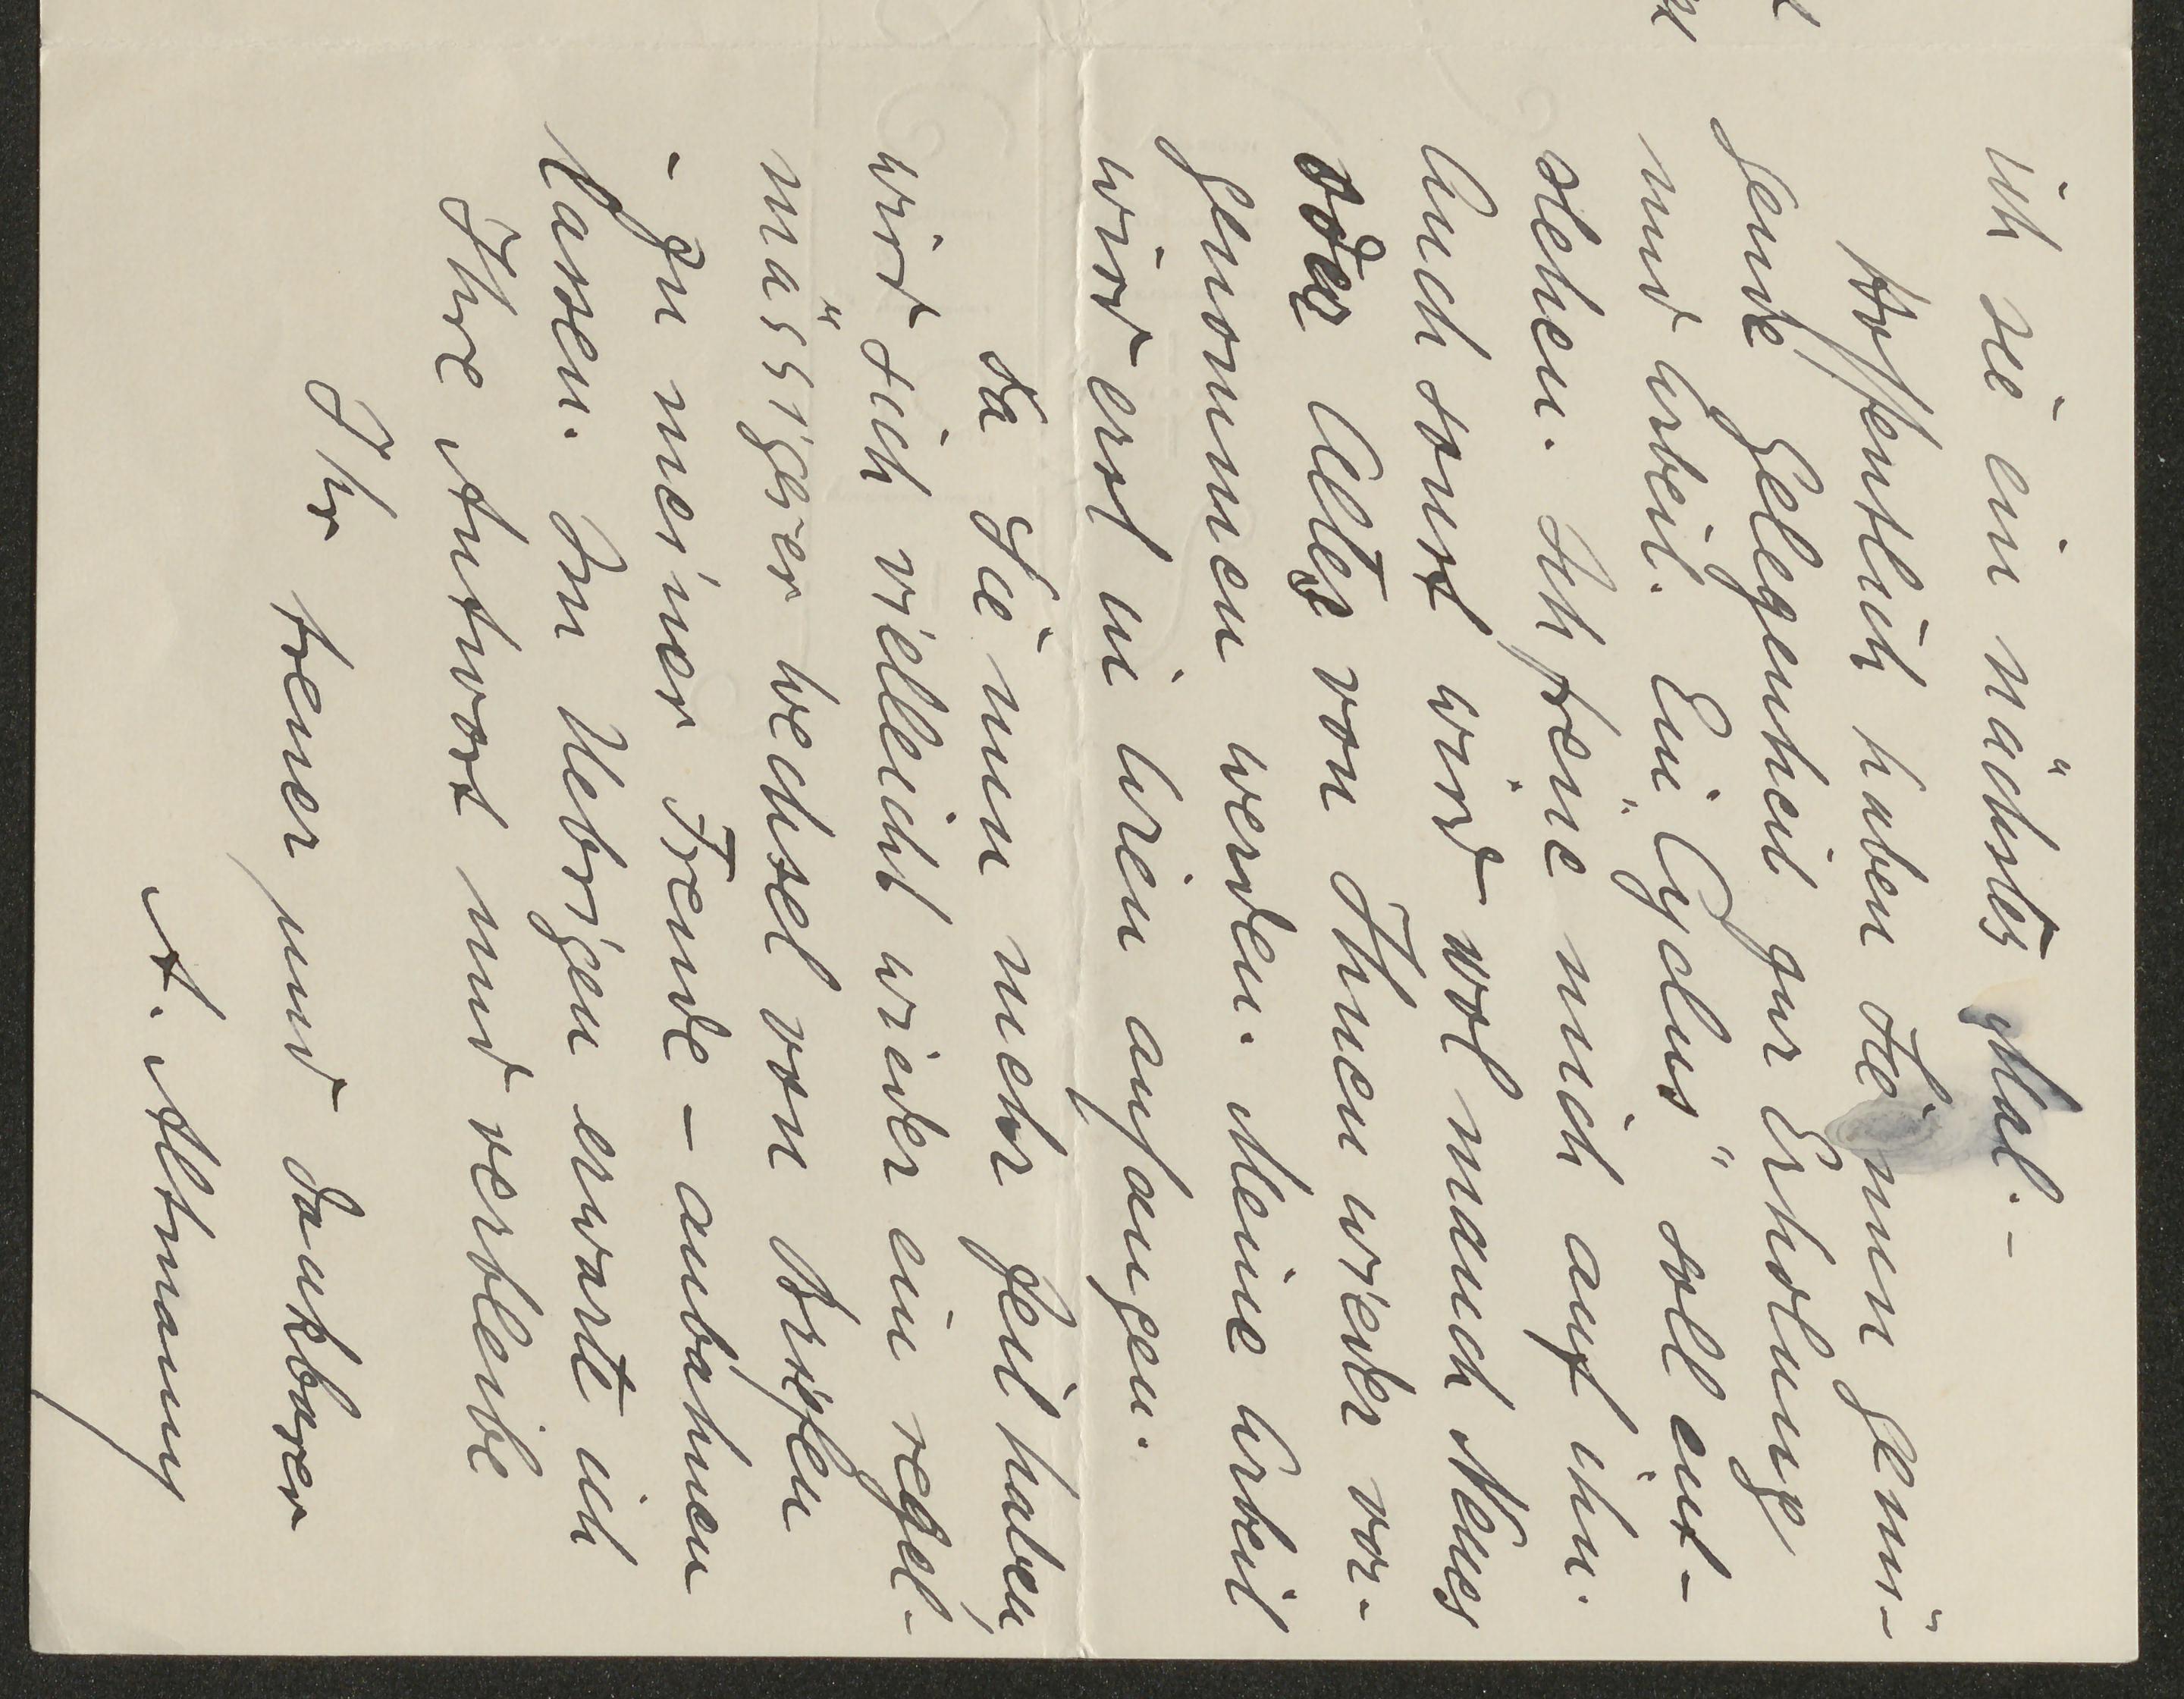 ich sie ein nächstes Mal. –
Hoffentlich haben Sie nun genü-
gende Gelegenheit zur Erholung
und Arbeit. Ein "Cyclus" soll ent-
stehen. Ich freue mich auf ihn.
Auch sonst wird wol manch Neues
oder Altes von Ihnen wieder vor-
genommen werden. Meine Arbeit
wird erst in Wien anfangen.
Da Sie nun mehr Zeit haben,
wird sich vielleicht wieder ein regel-
mässigerer Wechsel von Briefen
– zu meiner Freude – anbahnen
lassen. Im Uebrigen erwarte ich
Ihre Antwort und verbleibe
Ihr treuer und dankbarer
A. Altmann